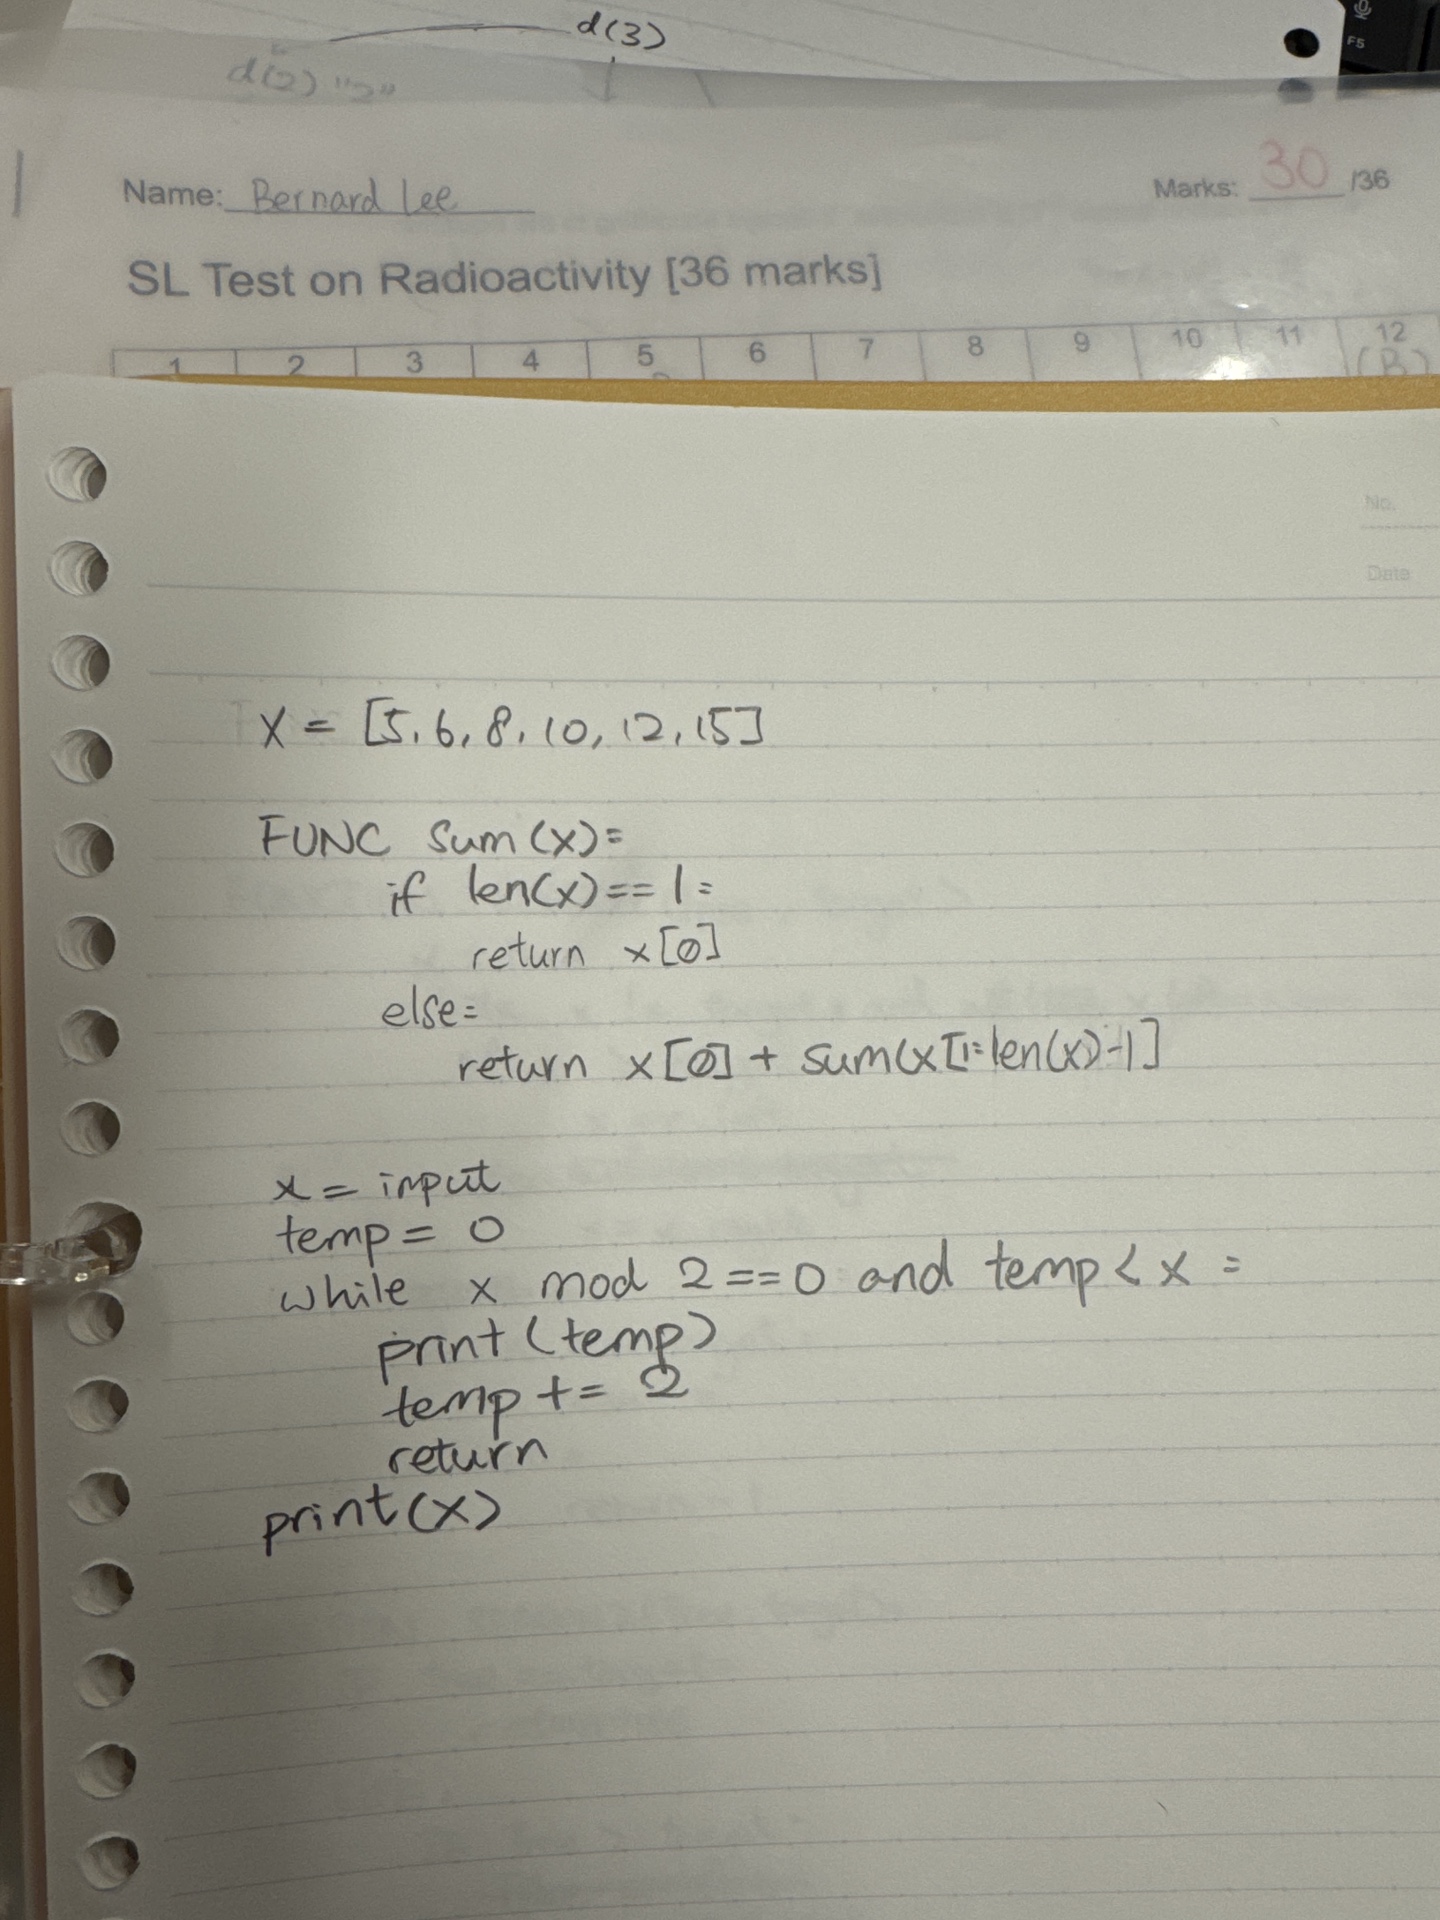 d(3)
d(2) "2"
F5
Name: Bernard Lee
Marks: 30 /36
SL Test on Radioactivity [36 marks]
1 2 3 4 5 6 7 8 9 10 11 12
(B)
No.
Date
X = [5, 6, 8, 10, 12, 15]
FUNC sum(x):
if len(x)==1:
return x[0]
else:
return x[0] + sum(x[1:len(x)-1]
x = input
temp = 0
while x mod 2 == 0 and temp < x :
print(temp)
temp += 2
return
print(x)